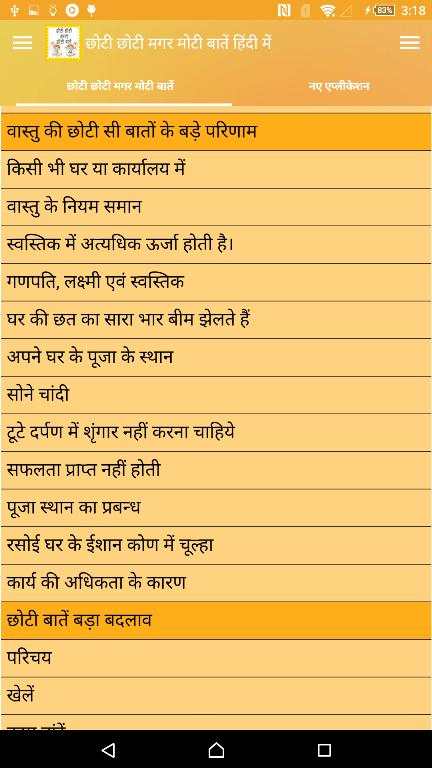 83% 3:18
छोटी छोटी मगर मोटी बातें हिंदी में
छोटी छोटी मगर मोटी बातें
नए एप्लीकेशन
वास्तु की छोटी सी बातों के बड़े परिणाम
किसी भी घर या कार्यालय में
वास्तु के नियम समान
स्वस्तिक में अत्यधिक ऊर्जा होती है।
गणपति, लक्ष्मी एवं स्वस्तिक
घर की छत का सारा भार बीम झेलते हैं
अपने घर के पूजा के स्थान
सोने चांदी
टूटे दर्पण में शृंगार नहीं करना चाहिये
सफलता प्राप्त नहीं होती
पूजा स्थान का प्रबन्ध
रसोई घर के ईशान कोण में चूल्हा
कार्य की अधिकता के कारण
छोटी बातें बड़ा बदलाव
परिचय
खेलें